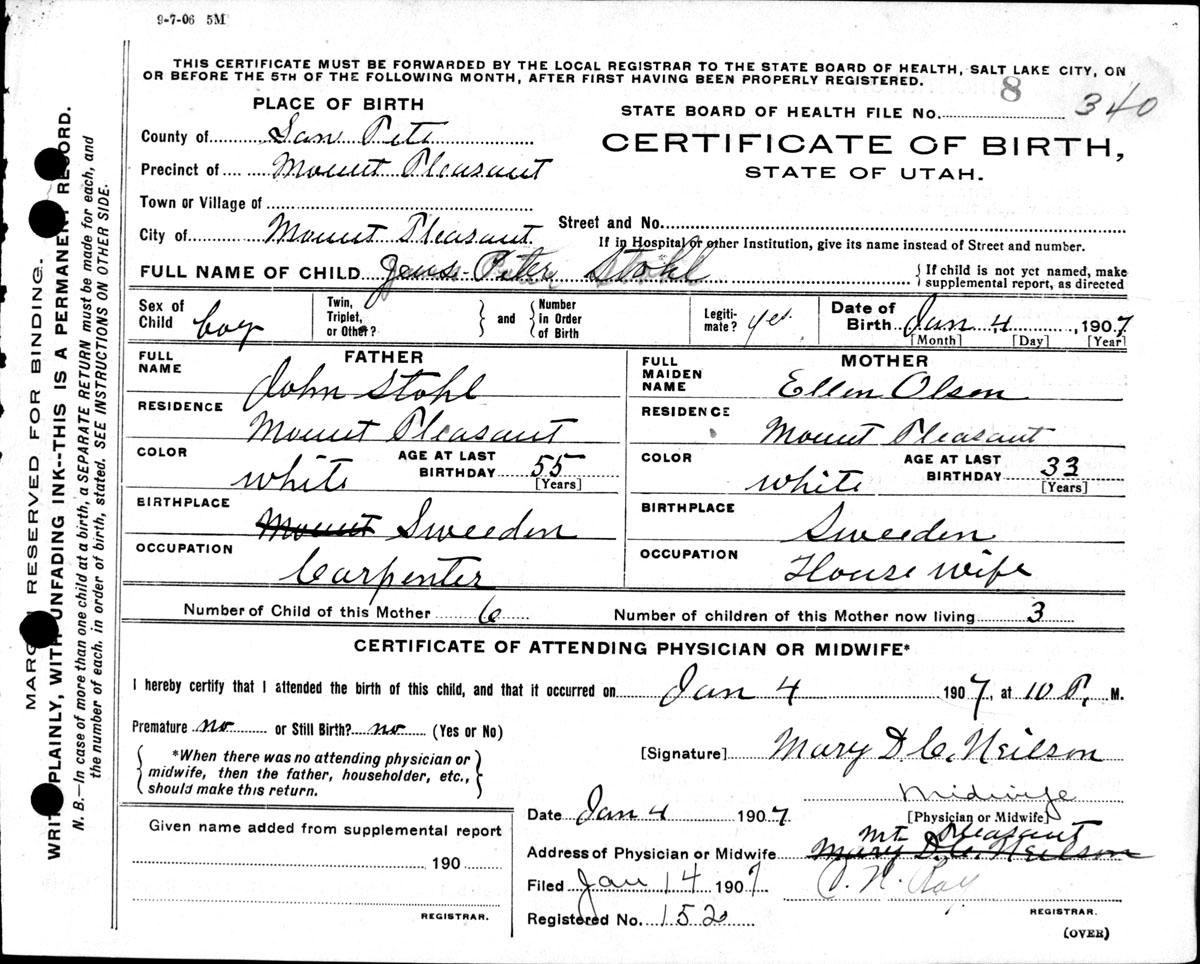 9-7-06 5M
THIS CERTIFICATE MUST BE FORWARDED BY THE LOCAL REGISTRAR TO THE STATE BOARD OF HEALTH, SALT LAKE CITY, ON
OR BEFORE THE 5TH OF THE FOLLOWING MONTH, AFTER FIRST HAVING BEEN PROPERLY REGISTERED.
8
PLACE OF BIRTH
STATE BOARD OF HEALTH FILE No. 340
County of San Pete
CERTIFICATE OF BIRTH,
Precinct of Mount Pleasant
STATE OF UTAH.
Town or Village of
Street and No.
City of Mount Pleasant
If in Hospital or other Institution, give its name instead of Street and number.
FULL NAME OF CHILD Jens Peter Stohl
{ If child is not yet named, make
supplemental report, as directed
Sex of Child boy
Twin, Triplet, or Other? } and { Number in Order of Birth
Legiti-mate? yes
Date of Birth Jan 4, 1907
[Month] [Day] [Year]
FATHER
FULL NAME John Stohl
RESIDENCE Mount Pleasant
COLOR white
AGE AT LAST BIRTHDAY 55
[Years]
BIRTHPLACE Mount Sweeden
OCCUPATION Carpenter
MOTHER
FULL MAIDEN NAME Ellen Olson
RESIDENCE Mount Pleasant
COLOR white
AGE AT LAST BIRTHDAY 33
[Years]
BIRTHPLACE Sweeden
OCCUPATION House wife
Number of Child of this Mother 6 Number of children of this Mother now living 3
CERTIFICATE OF ATTENDING PHYSICIAN OR MIDWIFE*
I hereby certify that I attended the birth of this child, and that it occurred on Jan 4 1907, at 10 P. M.
Premature no or Still Birth? no (Yes or No)
{ *When there was no attending physician or
midwife, then the father, householder, etc.,
should make this return. }
[Signature] Mary D. C. Neilson
Midwife
[Physician or Midwife]
Date Jan 4 1907
Mt Pleasant
Address of Physician or Midwife Mary D. C. Neilson
Filed Jan 14 1907
REGISTRAR.
Registered No. 152
(OVER)
Given name added from supplemental report
190
REGISTRAR.
RESERVED FOR BINDING.
PLAINLY, WITH UNFADING INK--THIS IS A PERMANENT RECORD.
N. B.—In case of more than one child at a birth, a SEPARATE RETURN must be made for each, and
the number of each, in order of birth, stated. SEE INSTRUCTIONS ON OTHER SIDE.